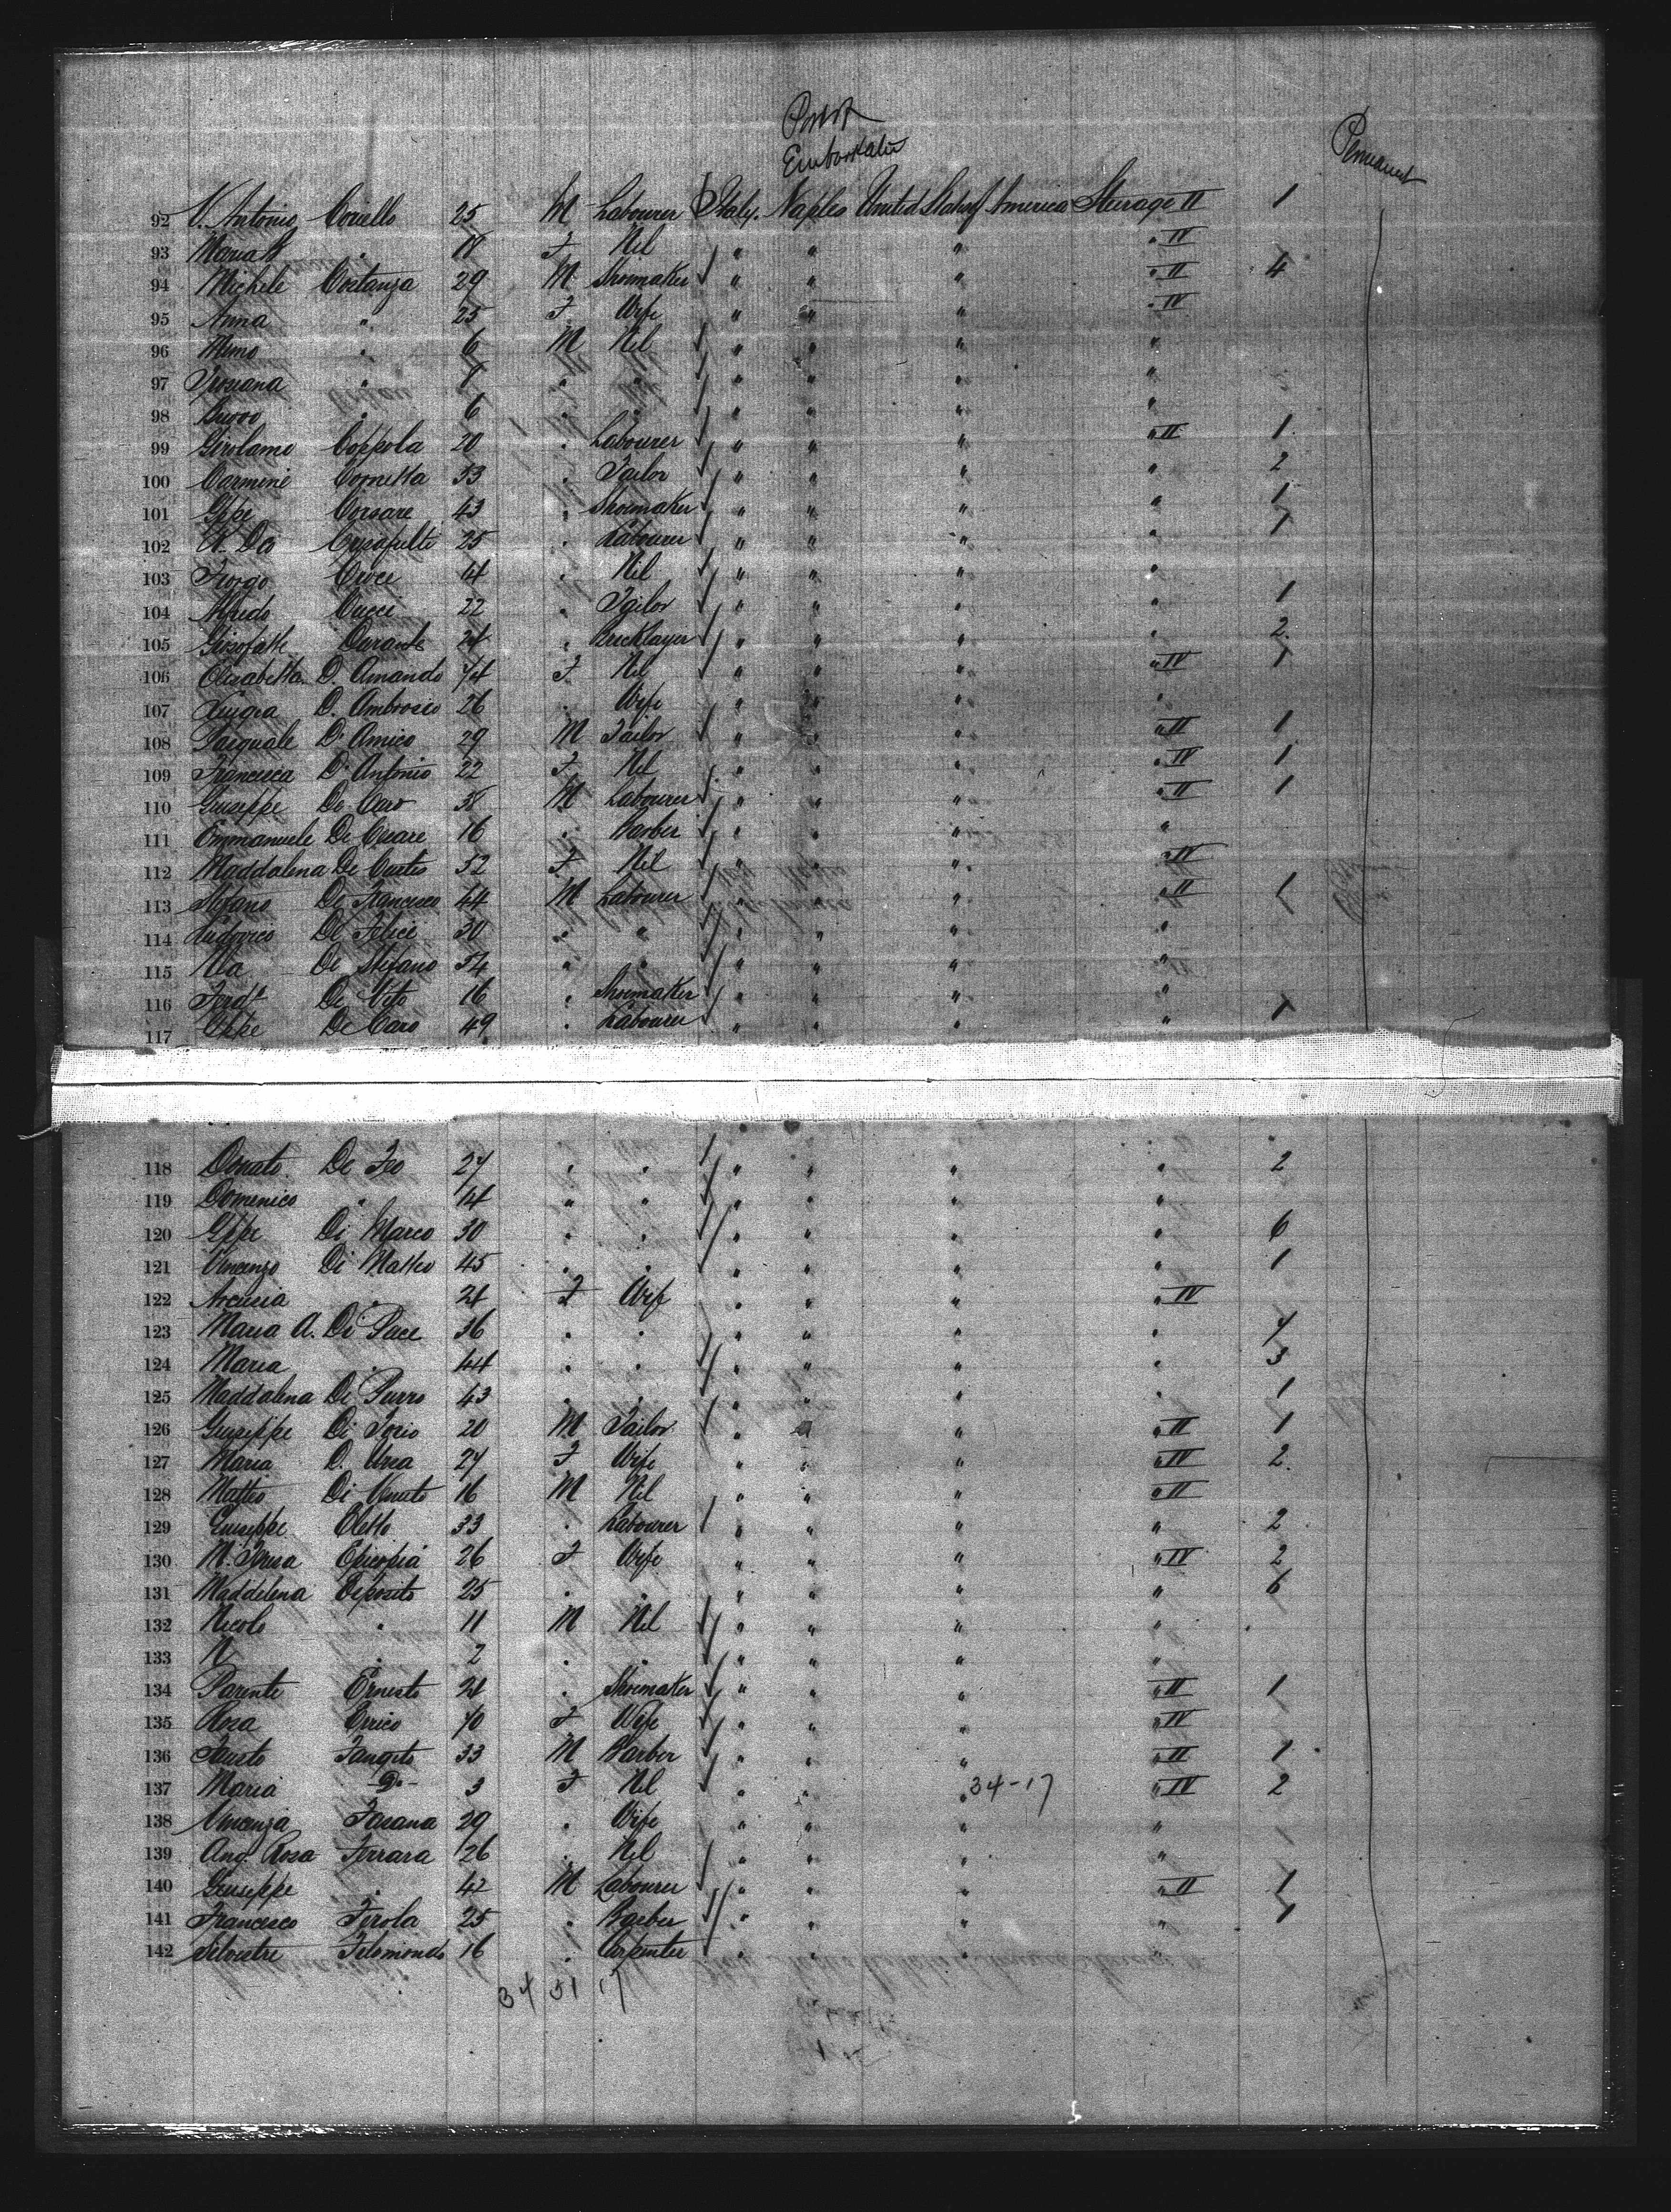 Port of
Embarkation
Permanent
92 V. Antonio Coviello 25 M Labourer Italy. Naples United States of America Steerage II 1
93 Maria " F Nil " " " " IV
94 Michele Costanza 29 M Shoemaker " " " " II 4
95 Anna " 25 F Wife " " " " IV
96 Mimo " 6 M Nil " " " "
97 " " " " " " "
98 " 6 " " " " " "
99 Girolamo Coppola 20 " Labourer " " " " II 1
100 Carmine Cornetta 33 " Tailor " " " " 2
101 Gppe Corsare 43 " Shoemaker " " " " 1
102 25 " Labourer " " " " 1
103 Croce 14 " Nil " " " "
104 Alfredo Cucci 22 " Tailor " " " " 1
105 Durante 24 " Bricklayer " " " " 2
106 Elisabetta D. Amando 74 F Nil " " " " IV 1
107 Luigia D. Ambrosio 26 " Wife " " " "
108 Pasquale D'Amico 29 M Tailor " " " " II 1
109 Francesca D'Antonio 22 F Nil " " " " IV 1
110 Giuseppe De Caro 38 M Labourer " " " " II 1
111 Emmanuele De Cesare 16 " Barber " " " "
112 Maddalena De Curtis 52 F Nil " " " " IV
113 Stefano De Francesco 44 M Labourer " " " " II 1
114 Ludovico De Felice 30 " " " " " "
115 De Stefano 54 " " " " " "
116 Ferdt De Vito 16 " Shoemaker " " " "
117 Gppe De Caro 49 " Labourer " " " " 1
118 Donato De Feo 27 " " " " " " 2
119 Domenico " 14 " " " " " "
120 Gppe Di Marco 30 " " " " " " 6
121 Vincenzo Di Matteo 45 " " " " " " 1
122 " 24 F Wife " " " " IV
123 Maria A. Di Pace 36 " " " " " " 7
124 Maria " 44 " " " " " " 3
125 Maddalena Di 43 " " " " " " 1
126 Giuseppe Di Iorio 20 M Tailor " " " " II 1
127 Maria D. 27 F Wife " " " " IV 2
128 Matteo Di 16 M Nil " " " " II
129 Giuseppe Eletto 33 " Labourer " " " " 2
130 26 F Wife " " " " IV 2
131 Maddelena Esposito 25 " " " " " " 6
132 Nicolo " 11 M Nil " " " "
133 N " 2 " " " " " "
134 Parente Ernesto 24 " Shoemaker " " " " II 1
135 Rosa Errico 40 F Wife " " " " IV
136 Fausto 33 M Barber " " " " II 1
137 Maria -Do- 3 F Nil " " " 34-17 " IV 2
138 Vincenza Fasana 29 " Wife " " " "
139 Ang. Rosa Ferrara 26 " Nil " " " "
140 Giuseppe " 42 M Labourer " " " " II 1
141 Francesco Ferola 25 " Barber " " " " 1
142 Silvestre Filomondo 16 " Carpenter " " " "
34 51 17